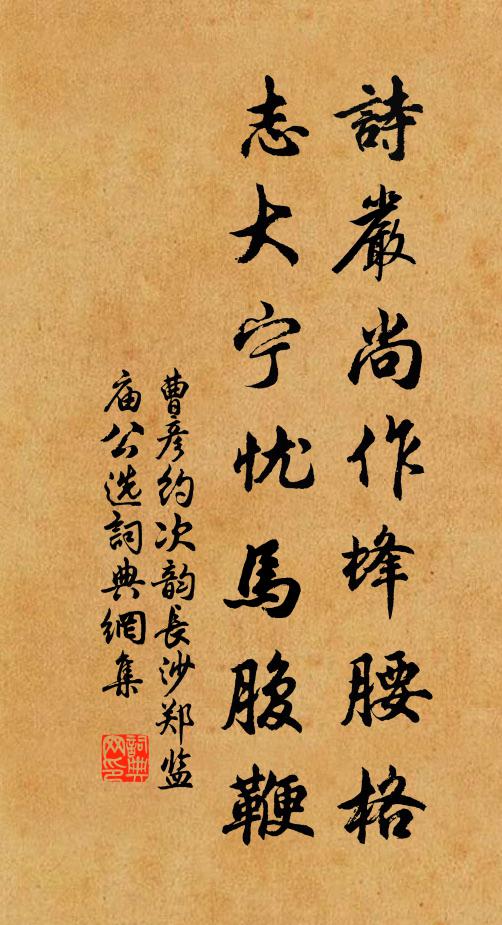 詩嚴尚作蜂腰格
志大宁忧馬腹鞭
曹彦约次韵長沙郑监
庙公选詞典網集
詞典网印